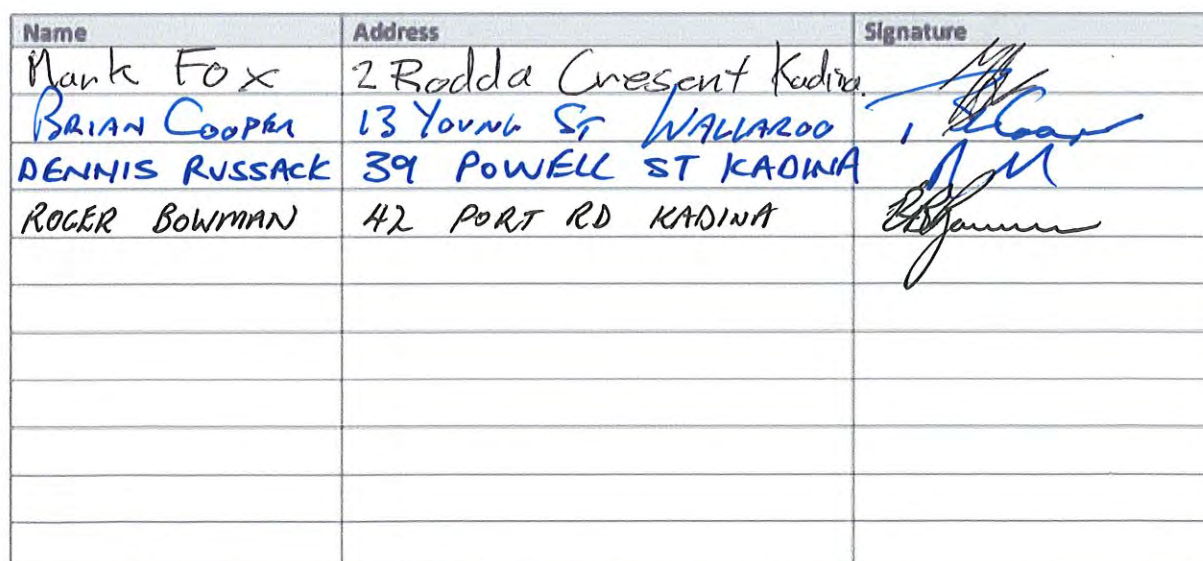 Name Address Signature
Mark Fox 2 Rodda Cresent Kadina.
BRIAN COOPER 13 YOUNG ST WALLAROO
DENNIS RUSSACK 39 POWELL ST KADINA
ROGER BOWMAN 42 PORT RD KADINA